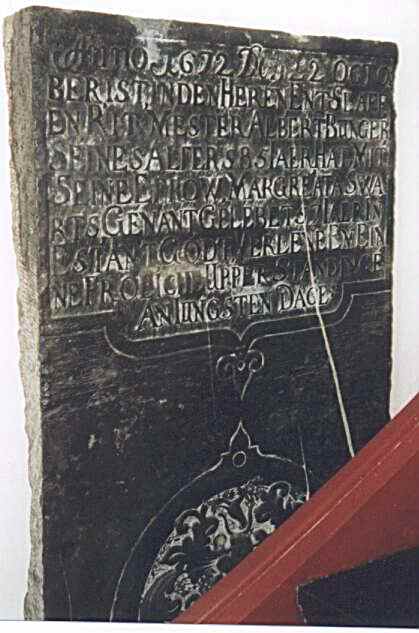 ANNO 1672 DEN 22 OCTO
BER IST IN DEN HEREN ENTSLAPP
EN RITTMESTER ALBERT BUNGER
SEINES ALTERS 85 IAER HAT MIT
SEINE EHROW MARGREATA SWA
RTS GENANT GELEBET 57 IAER IN
ESTANT GODT VERLENE EM EIN
NE FROLICHE UPPERSTANDINGE
AN IUNGSTEN DAGE